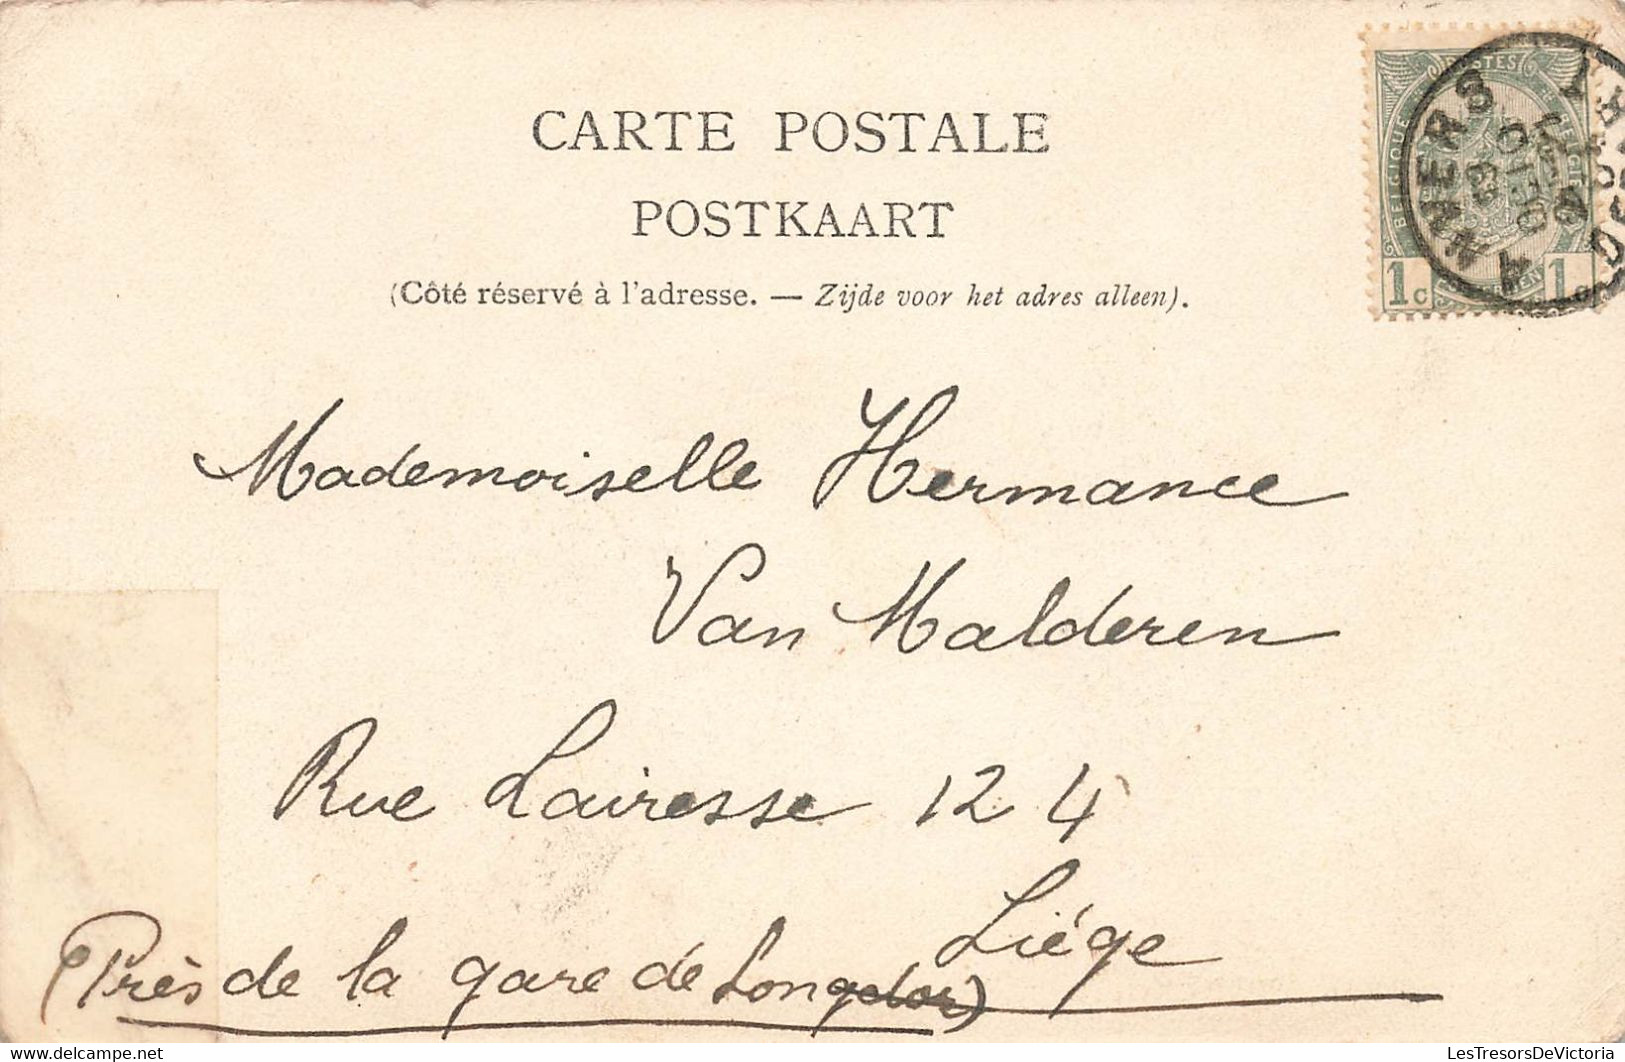 CARTE POSTALE
POSTKAART
(Côté réservé à l'adresse. — Zijde voor het adres alleen).
POSTES
BELGIQUE
BELGIË
1c
1c
ANVERS
Mademoiselle Hermance
Van Malderen
Rue Lairesse 124
Liége
(Près de la gare de Longdoz)
LesTresorsDeVictoria